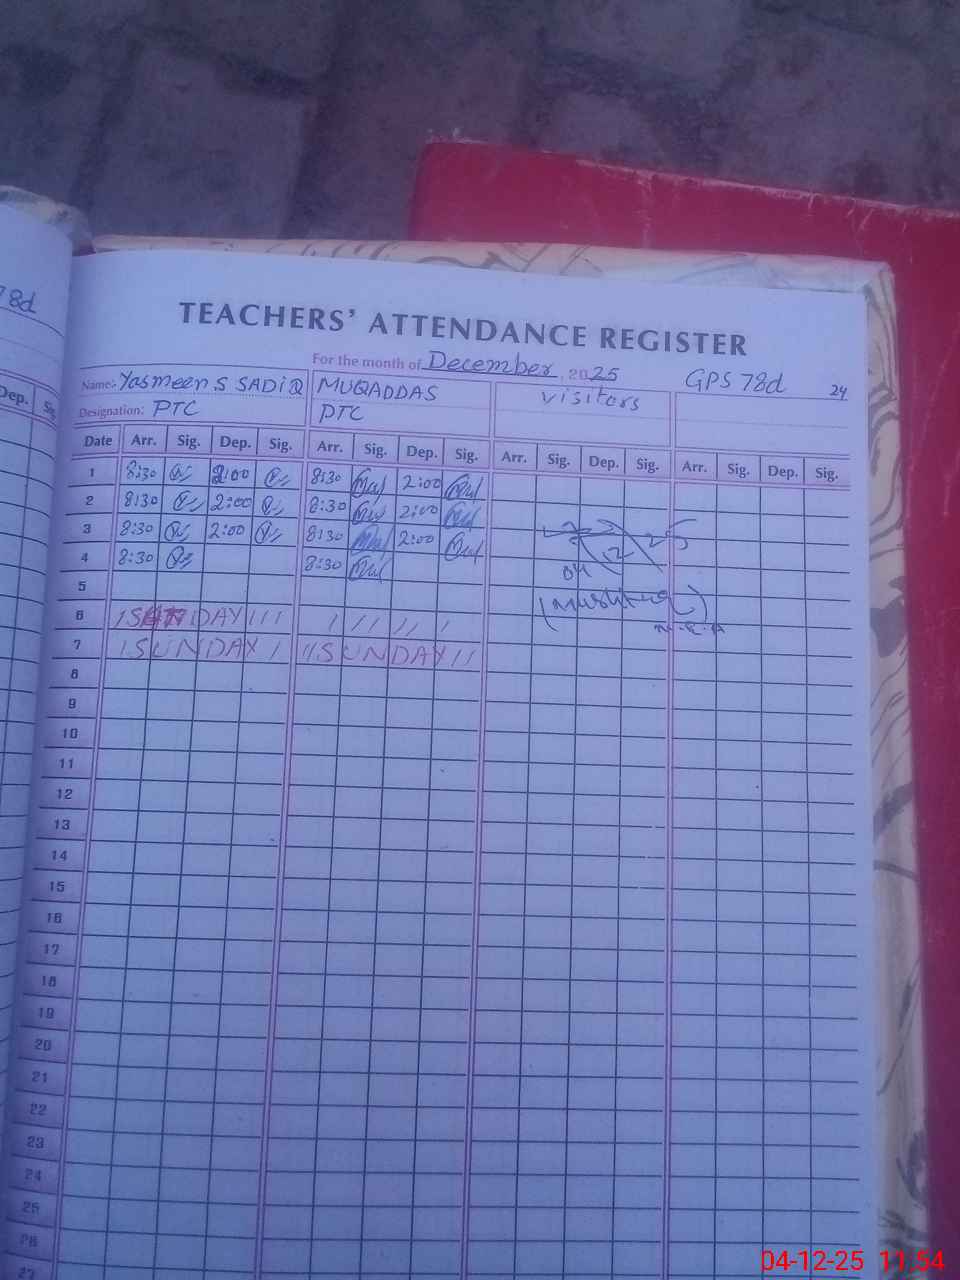 78d
Dep. Sig.
TEACHERS' ATTENDANCE REGISTER
For the month of December, 2025
GPS 78d 24
Name: Yasmeen S SADIQ MUQADDAS visitors
Designation: PTC PTC
Date Arr. Sig. Dep. Sig. Arr. Sig. Dep. Sig. Arr. Sig. Dep. Sig. Arr. Sig. Dep. Sig.
1 8:30 2:00 8:30 2:00
2 8:30 2:00 8:30 2:00
3 8:30 2:00 8:30 2:00
4 8:30 8:30
04 12 25
5
6 DAY
7 SUNDAY SUNDAY
8
9
10
11
12
13
14
15
16
17
18
19
20
21
22
23
24
25
26
27
04-12-25 11:54